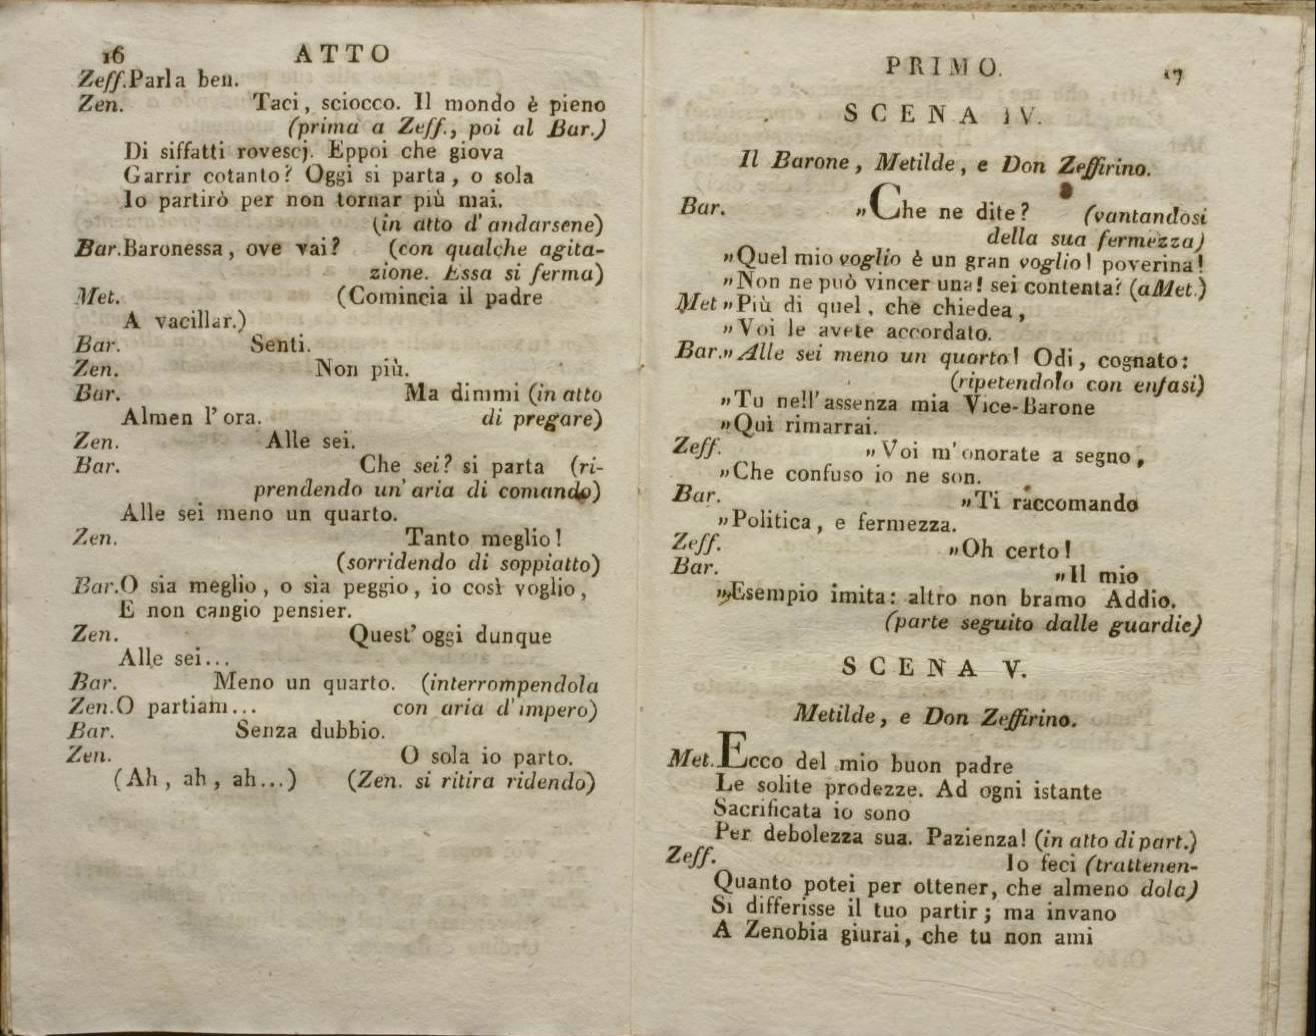 16 ATTO
Zeff. Parla ben.
Zen. Taci, sciocco. Il mondo è pieno
(prima a Zeff., poi al Bar.)
Di siffatti rovescj. Eppoi che giova
Garrir cotanto? Oggi si parta, o sola
Io partirò per non tornar più mai.
(in atto d'andarsene)
Bar. Baronessa, ove vai? (con qualche agita-
zione. Essa si ferma)
Met. (Comincia il padre
A vacillar.)
Bar. Senti.
Zen. Non più.
Bar. Ma dimmi (in atto
Almen l'ora. di pregare)
Zen. Alle sei.
Bar. Che sei? si parta (ri-
prendendo un'aria di comando)
Alle sei meno un quarto.
Zen. Tanto meglio!
(sorridendo di soppiatto)
Bar. O sia meglio, o sia peggio, io così voglio,
E non cangio pensier.
Zen. Quest'oggi dunque
Alle sei...
Bar. Meno un quarto. (interrompendola
Zen. O partiam... con aria d'impero)
Bar. Senza dubbio.
Zen. O sola io parto.
(Ah, ah, ah...) (Zen. si ritira ridendo)
PRIMO. 17
SCENA IV.
Il Barone, Metilde, e Don Zeffirino.
Bar. „Che ne dite? (vantandosi
della sua fermezza)
„Quel mio voglio è un gran voglio! poverina!
„Non ne può vincer una! sei contenta? (a Met.)
Met „Più di quel, che chiedea,
„Voi le avete accordato.
Bar. „Alle sei meno un quarto! Odi, cognato:
(ripetendolo con enfasi)
„Tu nell'assenza mia Vice-Barone
„Qui rimarrai.
Zeff. „Voi m'onorate a segno,
„Che confuso io ne son.
Bar. „Ti raccomando
„Politica, e fermezza.
Zeff. „Oh certo!
Bar. „Il mio
„Esempio imita: altro non bramo Addio.
(parte seguito dalle guardie)
SCENA V.
Metilde, e Don Zeffirino.
Met. Ecco del mio buon padre
Le solite prodezze. Ad ogni istante
Sacrificata io sono
Per debolezza sua. Pazienza! (in atto di part.)
Zeff. Io feci (trattenen-
Quanto potei per ottener, che almeno dola)
Si differisse il tuo partir; ma invano
A Zenobia giurai, che tu non ami